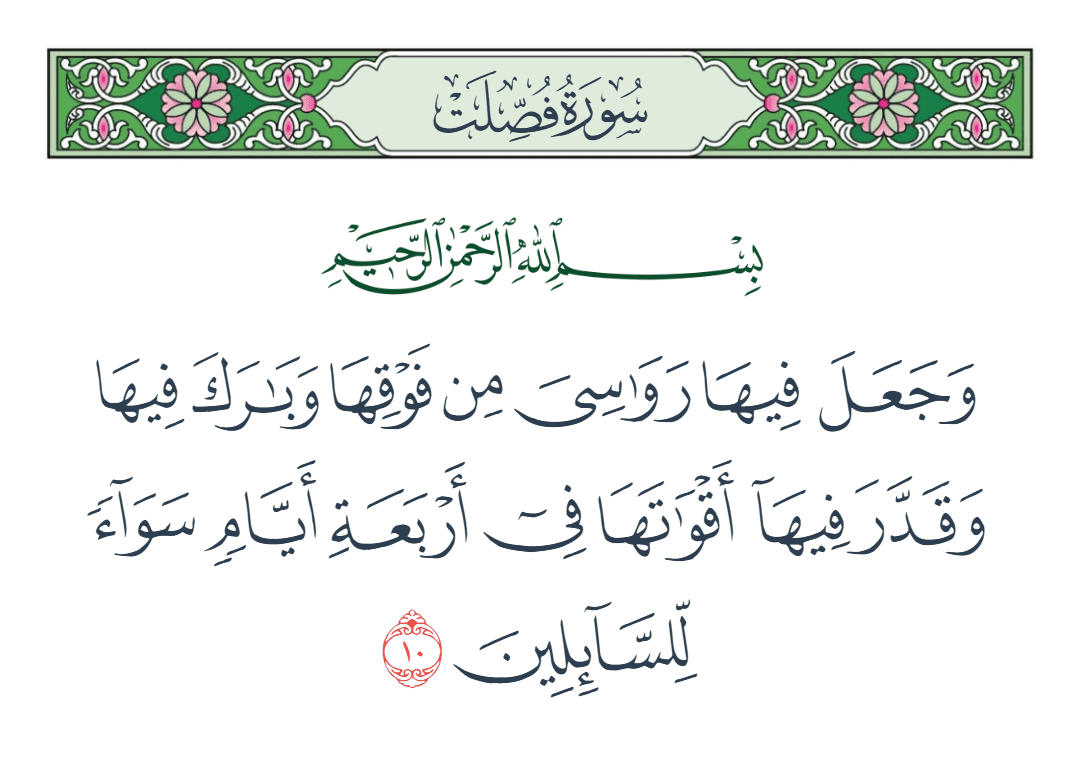 سُورَةُ فُصِّلَتْ
بِسْمِ ٱللَّهِ ٱلرَّحْمَٰنِ ٱلرَّحِيمِ
وَجَعَلَ فِيهَا رَوَٰسِىَ مِن فَوْقِهَا وَبَٰرَكَ فِيهَا
وَقَدَّرَ فِيهَآ أَقْوَٰتَهَا فِىٓ أَرْبَعَةِ أَيَّامٍ سَوَآءً
لِّلسَّآئِلِينَ ١٠